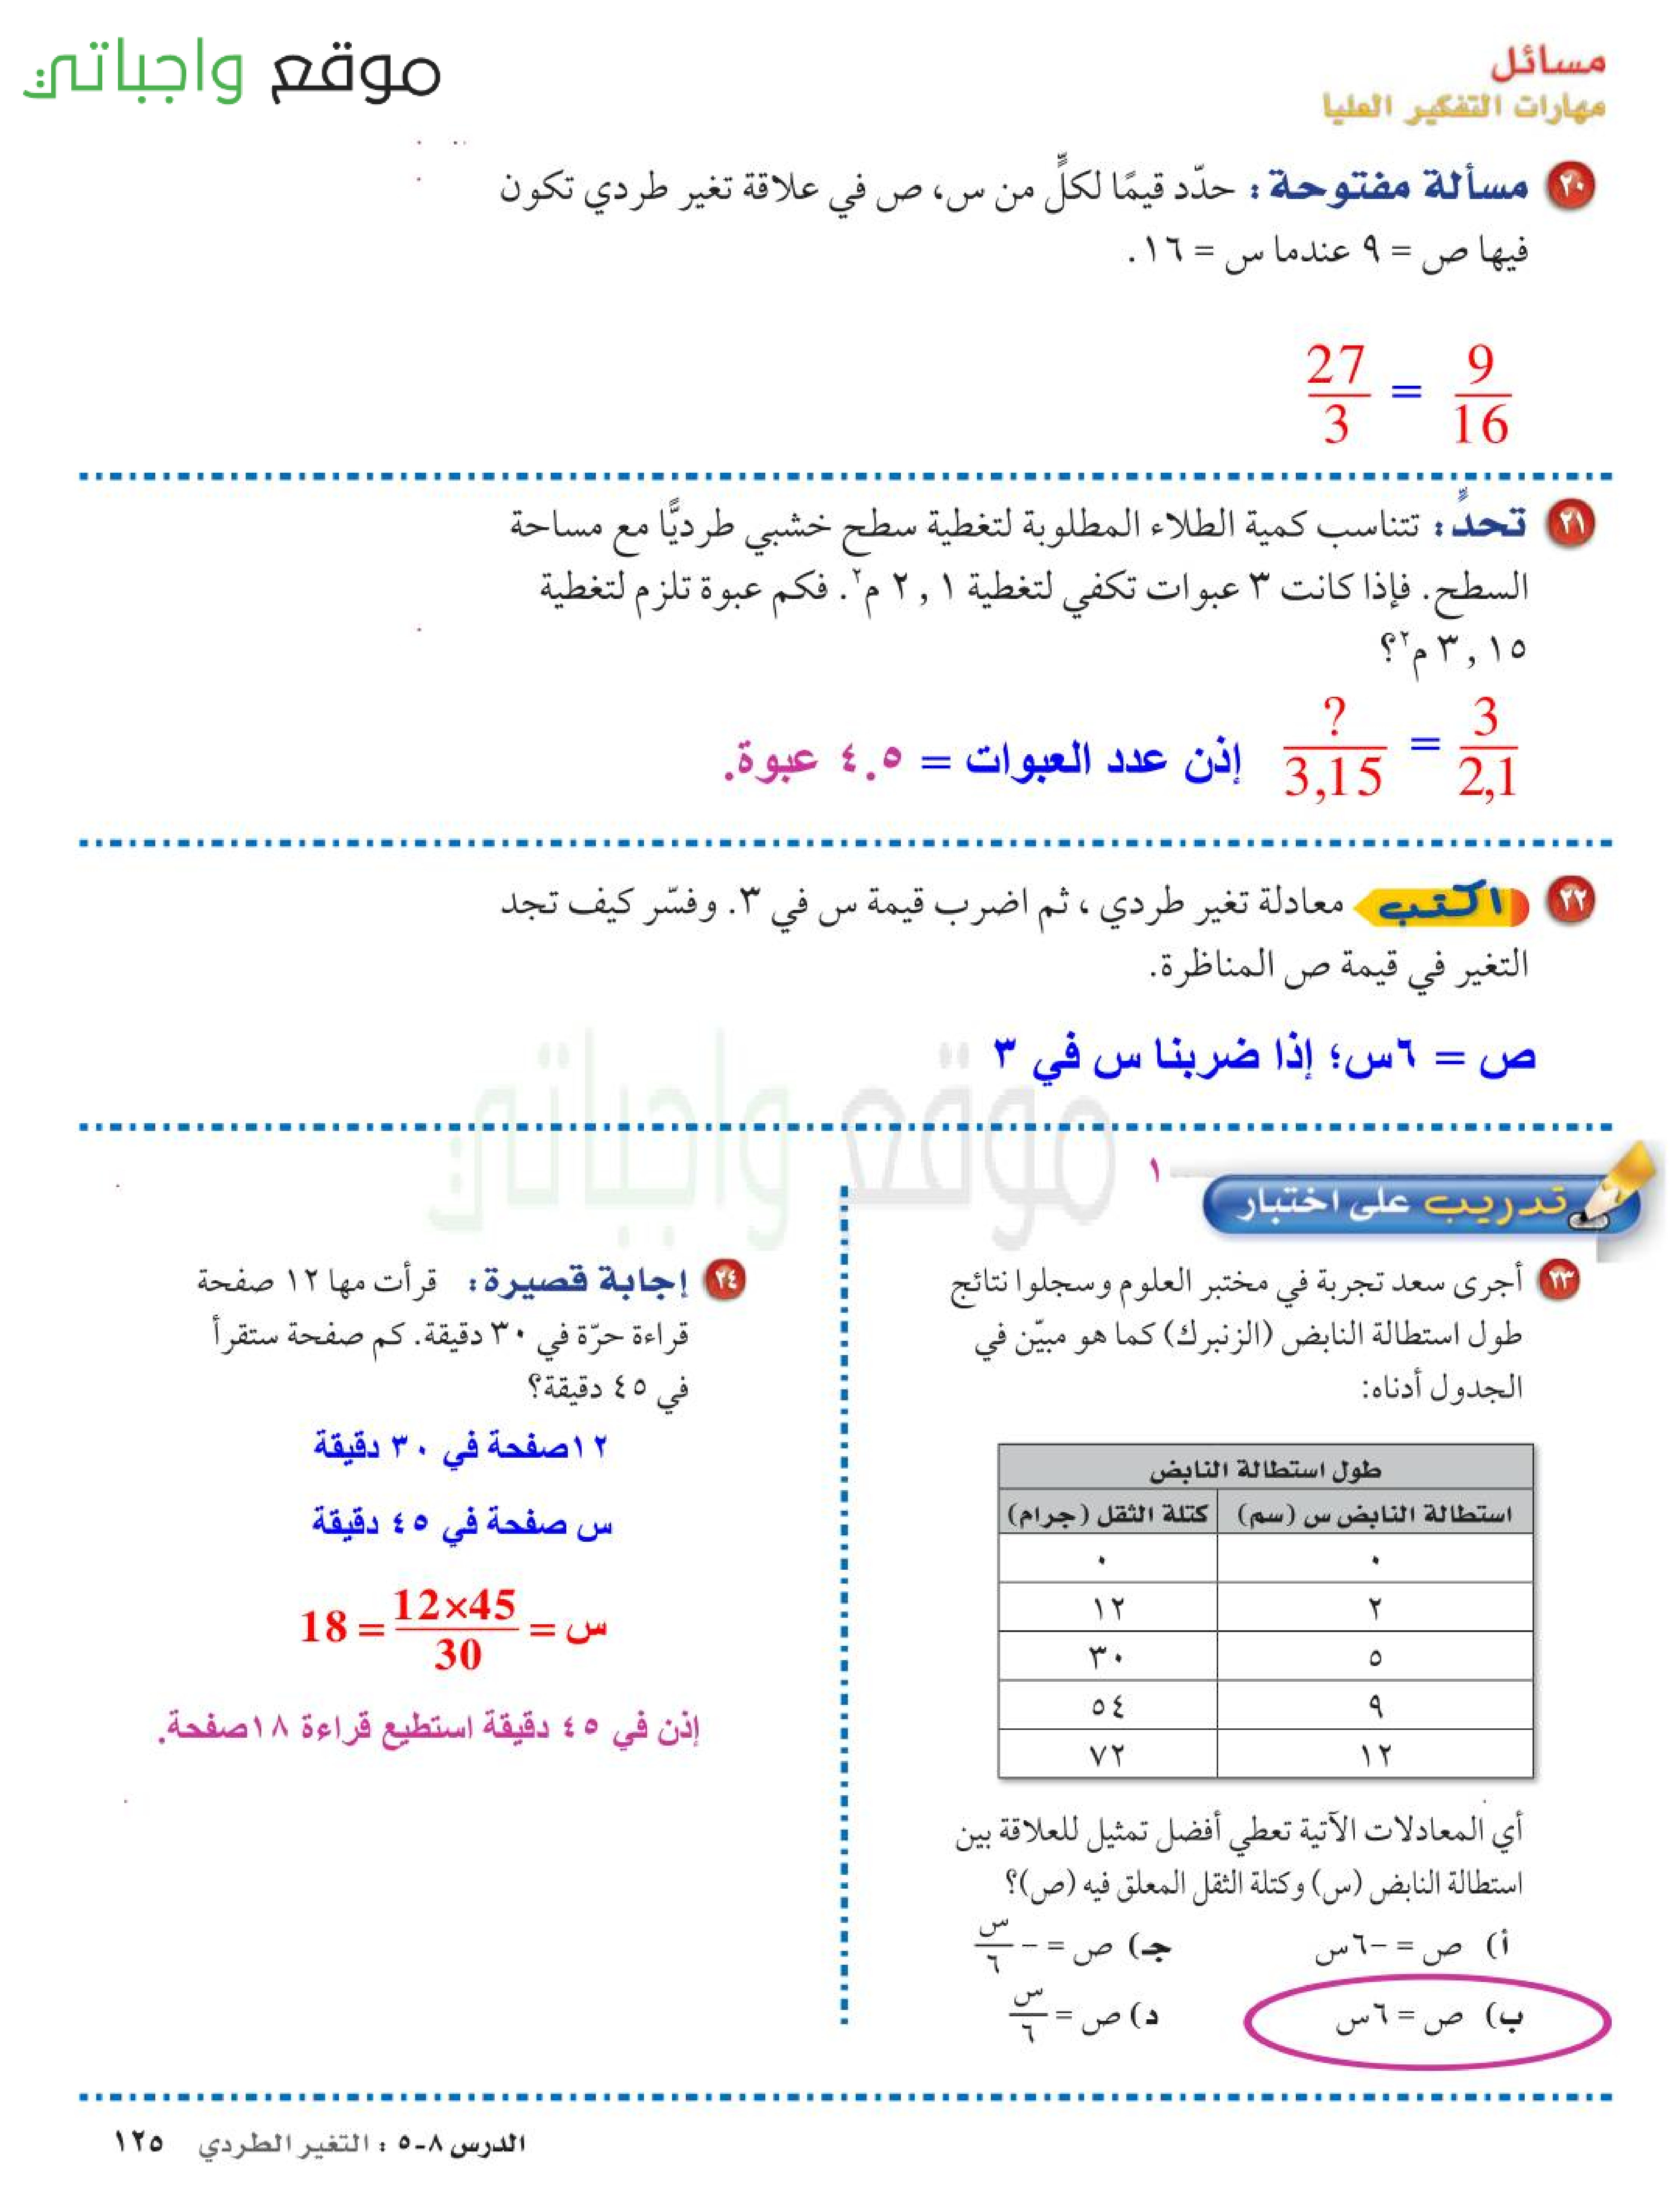 موقع واجباتي
مسائل
مهارات التفكير العليا
٢٠ مسألة مفتوحة : حدّد قيمًا لكلٍّ من س، ص في علاقة تغير طردي تكون
فيها ص = ٩ عندما س = ١٦ .
9/16 = 27/3
٢١ تحدٍّ : تتناسب كمية الطلاء المطلوبة لتغطية سطح خشبي طرديًّا مع مساحة
السطح. فإذا كانت ٣ عبوات تكفي لتغطية ٢,١ م٢. فكم عبوة تلزم لتغطية
٣,١٥ م٢؟
3/2,1 = ?/3,15 إذن عدد العبوات = ٤.٥ عبوة.
٢٢ اكتب معادلة تغير طردي ، ثم اضرب قيمة س في ٣. وفسّر كيف تجد
التغير في قيمة ص المناظرة.
ص = ٦س؛ إذا ضربنا س في ٣
موقع واجباتي
١
تدريب على اختبار
٢٣ أجرى سعد تجربة في مختبر العلوم وسجلوا نتائج
طول استطالة النابض (الزنبرك) كما هو مبيّن في
الجدول أدناه:
طول استطالة النابض
استطالة النابض س (سم) كتلة الثقل (جرام)
٠ ٠
٢ ١٢
٥ ٣٠
٩ ٥٤
١٢ ٧٢
أي المعادلات الآتية تعطي أفضل تمثيل للعلاقة بين
استطالة النابض (س) وكتلة الثقل المعلق فيه (ص)؟
أ) ص = -٦س جـ) ص = - س/٦
ب) ص = ٦س د) ص = س/٦
٢٤ إجابة قصيرة : قرأت مها ١٢ صفحة
قراءة حرّة في ٣٠ دقيقة. كم صفحة ستقرأ
في ٤٥ دقيقة؟
١٢صفحة في ٣٠ دقيقة
س صفحة في ٤٥ دقيقة
س = 12×45/30 = 18
إذن في ٤٥ دقيقة استطيع قراءة ١٨صفحة.
الدرس ٨-٥ : التغير الطردي ١٢٥